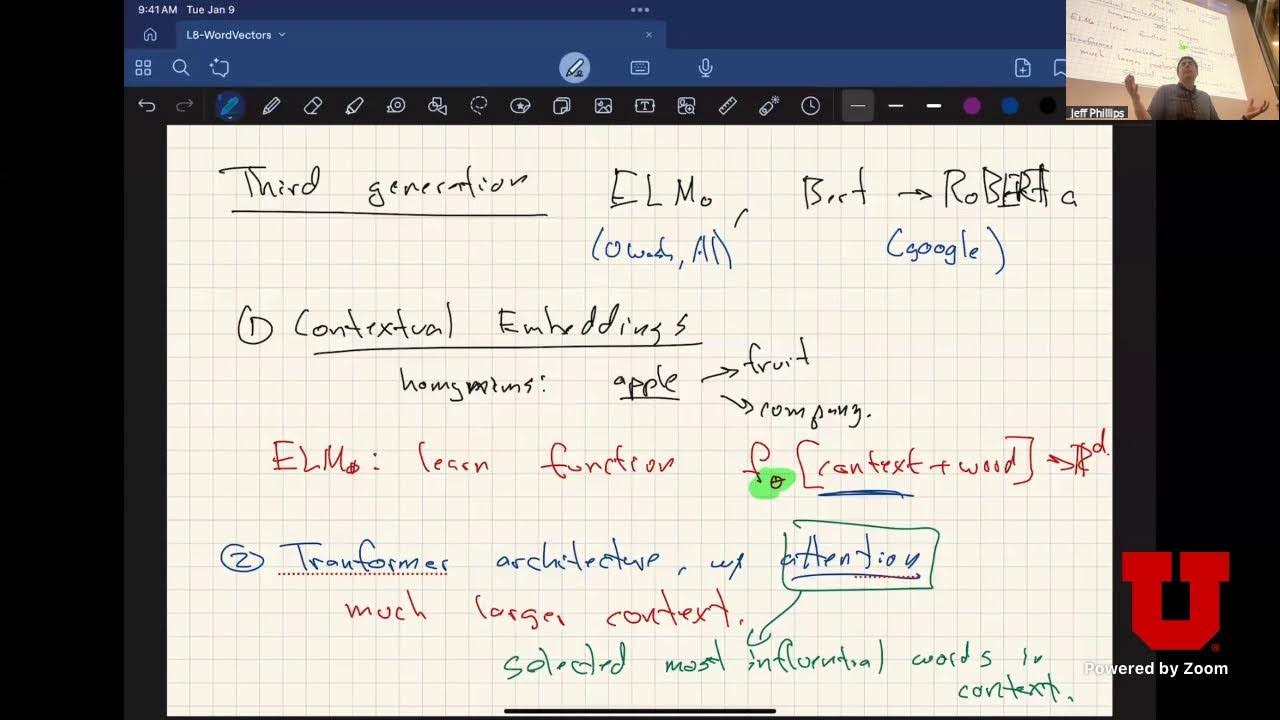 9:41 AM Tue Jan 9
L8-WordVectors
Jeff Phillips
Third generation ELMo, Bert → RoBERTa
(UWash, AI) (google)
① Contextual Embeddings
homynyms: apple → fruit
→ company.
ELMo: learn function fθ [context + word] → ℝᵈ
② Tranformer architecture, w/ attention
much larger context.
selected most influential words in
context.
U
Powered by Zoom